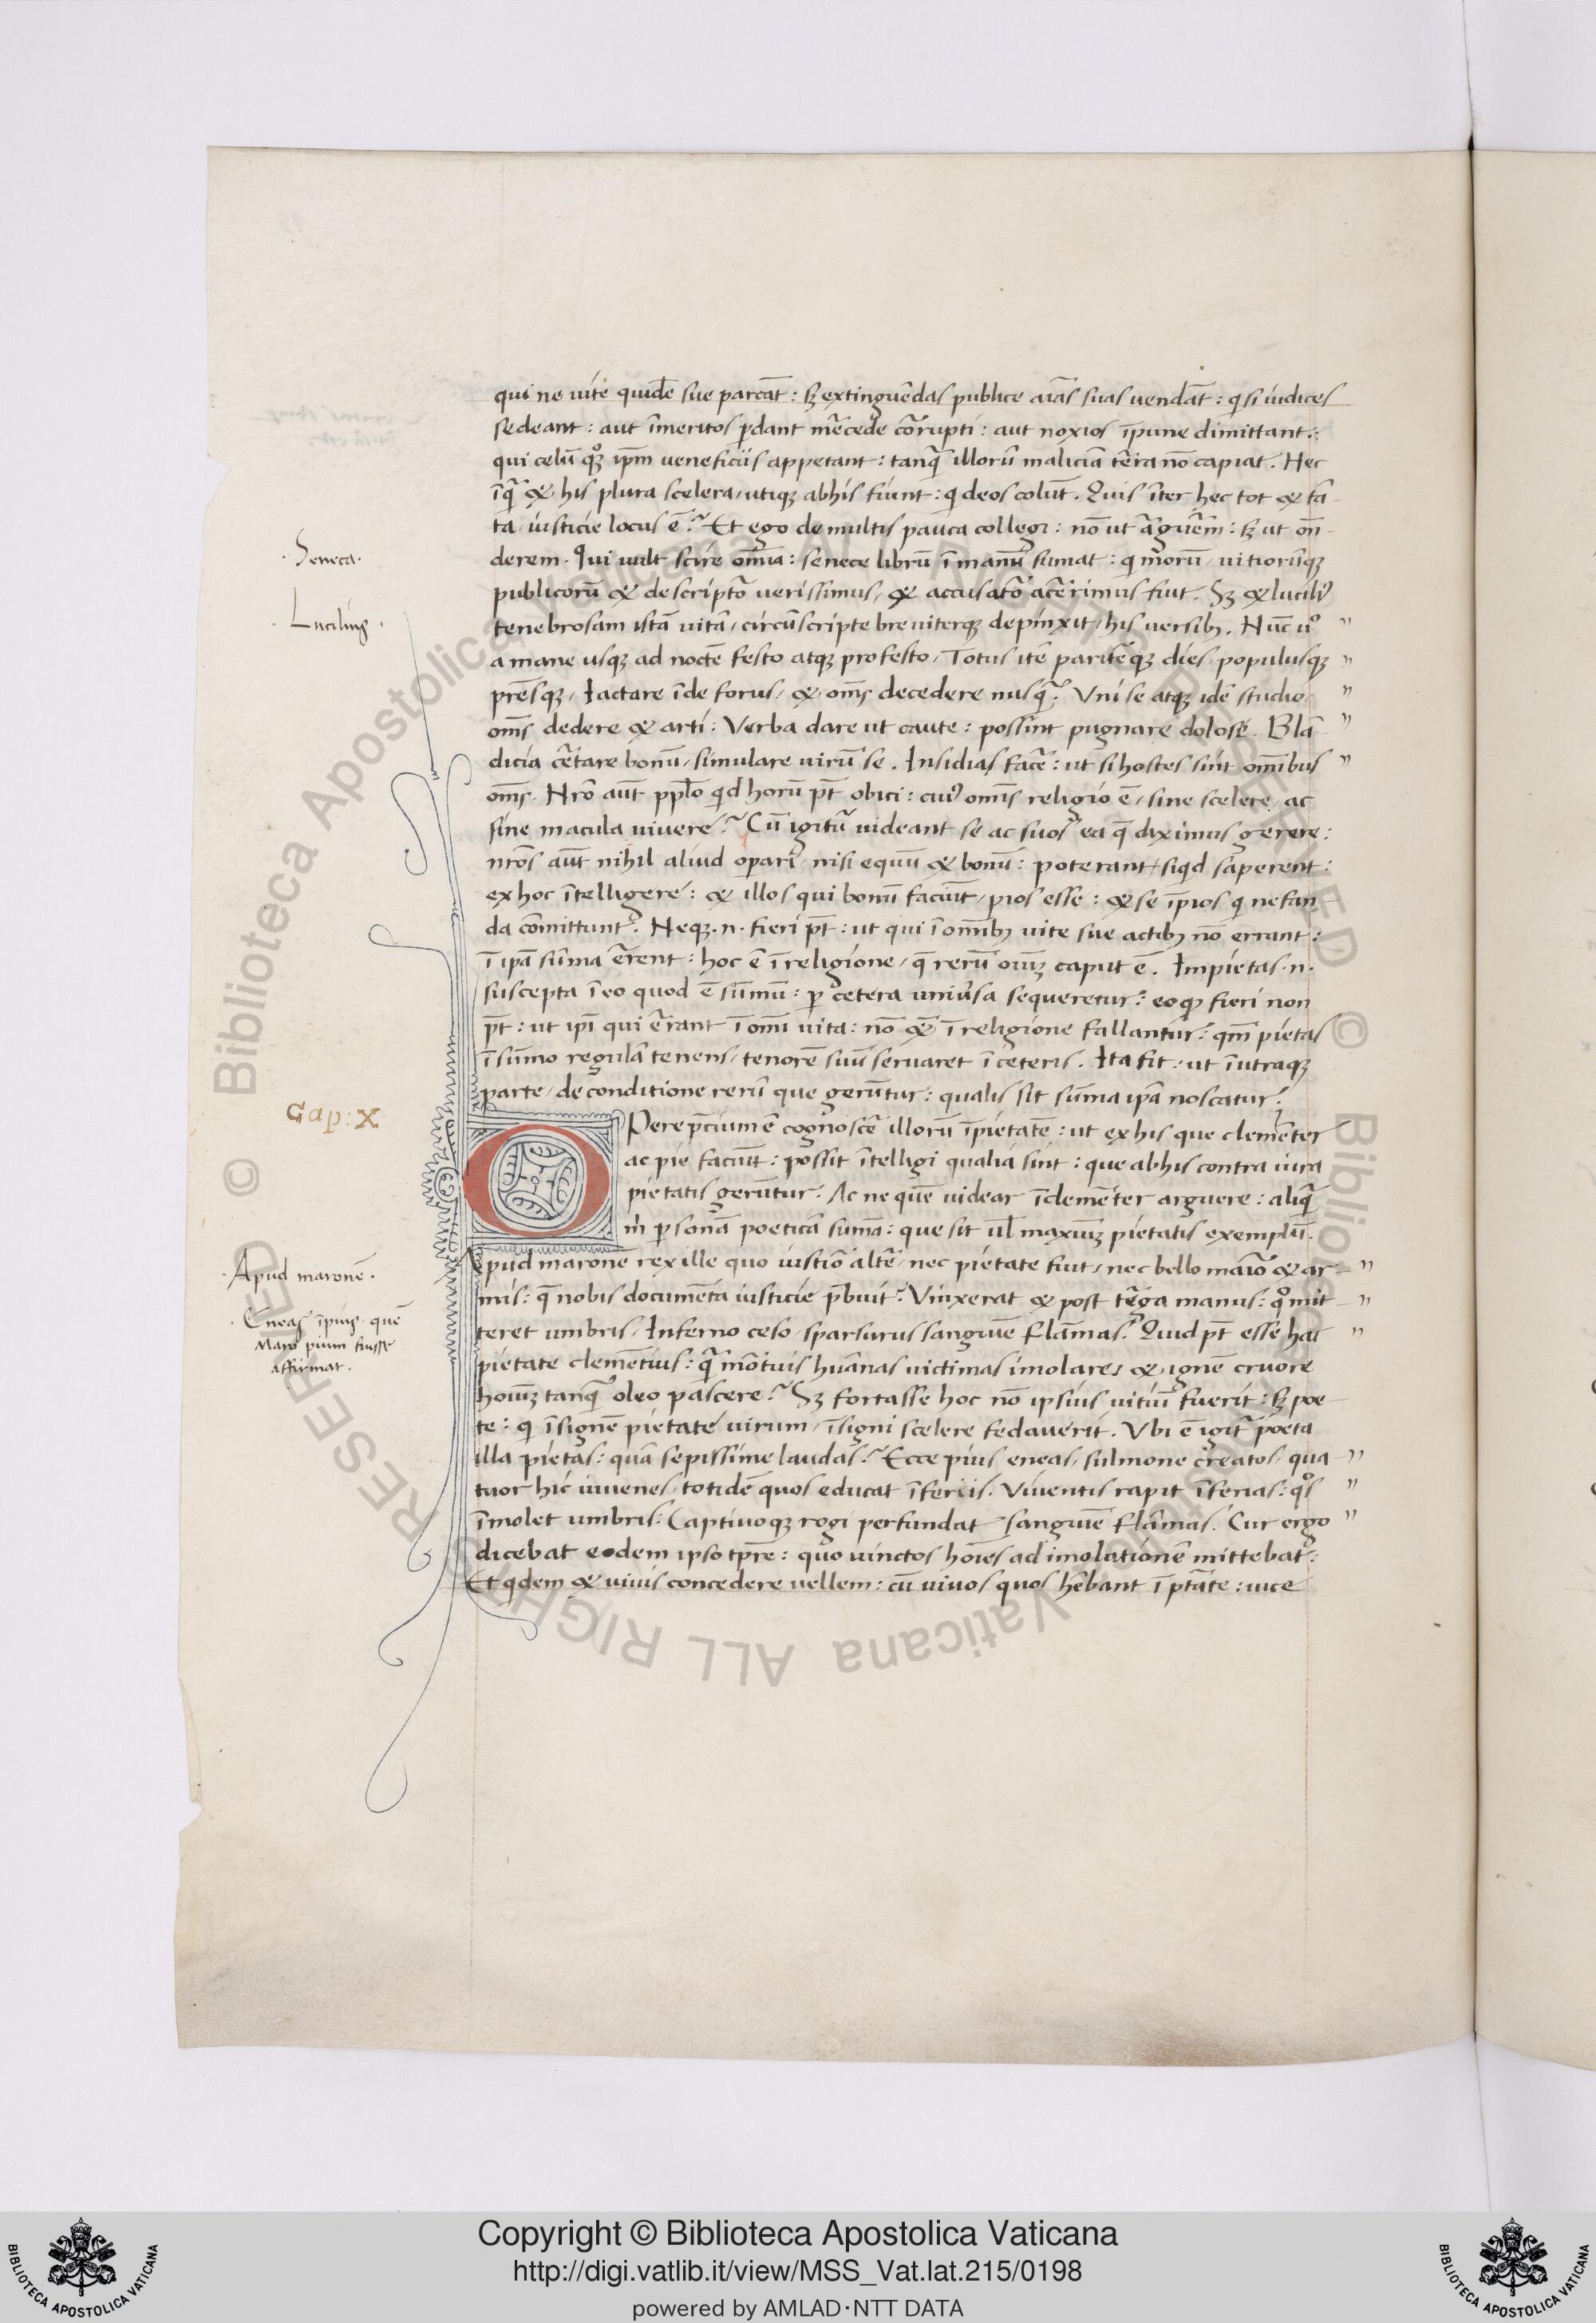 qui ne vite quidē sue parcāt : sꝫ extinguēdas publice aīas suas vendāt : q̇ si iudices
sedeant : aut īmeritos ꝑdant m̄cede cōrupti : aut noxios īpune dimittant :
qui celū qͦꝫ ip̄m veneficiis appetant : tanq̄ illorū maliciā t̄ra nō capiat . Hec
īq̄ & his plura scelera / utiqꝫ ab his fiunt : q̇ deos colūt . Quis īter hec tot & tā
ta / iusticie locus ē ? Et ego de multis pauca collegi : nō ut arguēm : sꝫ ut on̄
derem . Qui vult scire om̄ia : senece librū ī manū sumat : q̇ morū / vitiorūqꝫ
publicorū & descriptō verissimus / & accusatō acerimus fuit . Sꝫ & luciliꝰ
tenebrosam istā vitā / circūscripte breviterqꝫ depinxit / his versibꝫ . Nūc vͦ
a mane usqꝫ ad noctē festo atqꝫ profesto / Totus itē pariterqꝫ dies / populusqꝫ
pr̄esqꝫ / Iactare īde forus / & om̄s decedere nusq̄ . Vni se atqꝫ idē studio /
om̄s dedere & arti : Verba dare ut caute : possint pugnare dolose . Blā
dicia c̄tare bonū / simulare virū se . Insidias fac̄e : ut si hostes sint om̄ibus
om̄s . Nr̄o aūt pplo qd horū pt̄ obici : cuiꝰ omīs religio ē / sine scelere / ac
sine macula vivere ? Cū igitur videant se ac suos ea q̄ diximus gerere :
nr̄os aūt nihil aliud oꝑari / nisi equū & bonū : poterant / siqd saperent :
ex hoc ītelligere : & illos qui bonū faciūt / pios esse : & se īpios q̇ nefan
da cōmittunt . Neqꝫ .n. fieri pt̄ : ut qui ī om̄ibꝫ vite sue actibꝫ nō errant :
ī ip̄a sūma errent : hoc ē ī religione / q̄ rerū oīuꝫ caput ē . Impietas .n.
suscepta ī eo quod ē sūmū : ꝑ cetera uniūsa sequeretur : eoqꝫ fieri non
pt̄ : ut ip̄i qui errant ī omī vita : nō & ī religione fallantur : qm̄ pietas
ī sūmo regulā tenens / tenorē suū servaret ī ceteris . Ita fit : ut ī utraqꝫ
parte / de conditione rerū que gerūtur : qualis sit sūma ip̄a noscatur .
Cap : X
OPere p̄cium ē cognosc̄e illorū īpietatē : ut ex his que clemēter
ac pie faciūt : possit ītelligi qualia sint : que ab his contra iura
pietatis gerūtur . Ac ne quē videar īclemēter arguere : aliq̄
m̄ ꝑsonā poeticā sumā : que sit vl̄ maximuꝫ pietatis exemplū .
Apud maronē rex ille quo iustiō alt̄ / nec pietate fuit / nec bello maiō & ar
mis : q̄ nobis documēta iusticie p̄buit ? Vinxerat & post t̄ga manus : qͦs mit
teret umbris / Inferno ceso / sparsurus sanguīe flāmas . Quid pt̄ esse hac
pietate clemētius : q̄ mōtuis huānas victimas imolare & ignē cruore
hoīuꝫ tanq̄ oleo pascere ? Sꝫ fortasse hoc nō ipsius vitiū fuerit : sꝫ poe
te : q̇ īsignē pietate virum / īsigni scelere fedaverit . Vbi ē igit̄ poeta
illa pietas : quā sepissime laudas ? Ecce pius eneas / sulmone creatos / qua
tuor hic iuvenes / totidē quos educat īferiis . Viventis rapit īferias : qͦs
īmolet umbris : Captivoqꝫ rogi perfundat sanguīe flāmas . Cur ergo
dicebat eodem ipso tp̄re : quo vinctos hoīes ad imolationē mittebat :
Et qdem & vivis concedere vellem : cū vivos quos hēbant ī ptāte : vice
. Seneca .
. Lucilius .
. Apud maronē .
. Eneas īpius / quē
Maro pium fuisse
affirmat .
© Biblioteca Apostolica Vaticana ALL RIGHTS RESERVED © Biblioteca Apostolica Vaticana ALL RIGHTS RESERVED
Copyright © Biblioteca Apostolica Vaticana
http://digi.vatlib.it/view/MSS_Vat.lat.215/0198
powered by AMLAD·NTT DATA
BIBLIOTECA APOSTOLICA VATICANA
BIBLIOTECA APOSTOLICA VATICANA